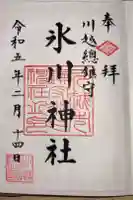 奉拝
川越總鎮守
氷川神社
令和五年二月十四日